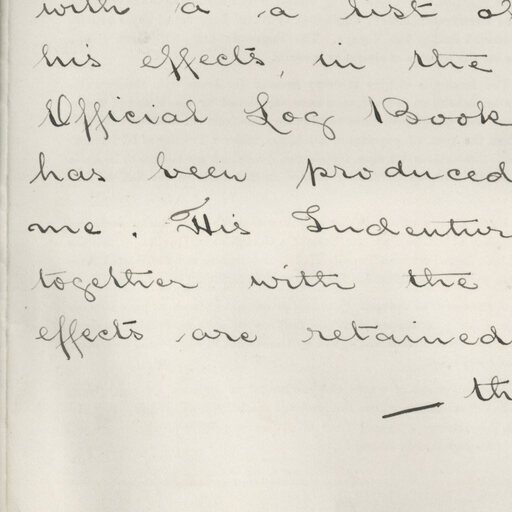 with a a list of
his effects, in the
Official Log Book
has been produced
me. His Indentur
together with the
effects are retained
— th